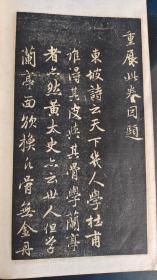 重展此卷因題
東坡詩云天下幾人學杜甫
誰得其皮與其骨學蘭亭
者亦然黃太史亦云世人但學
蘭亭面欲換凡骨無金丹